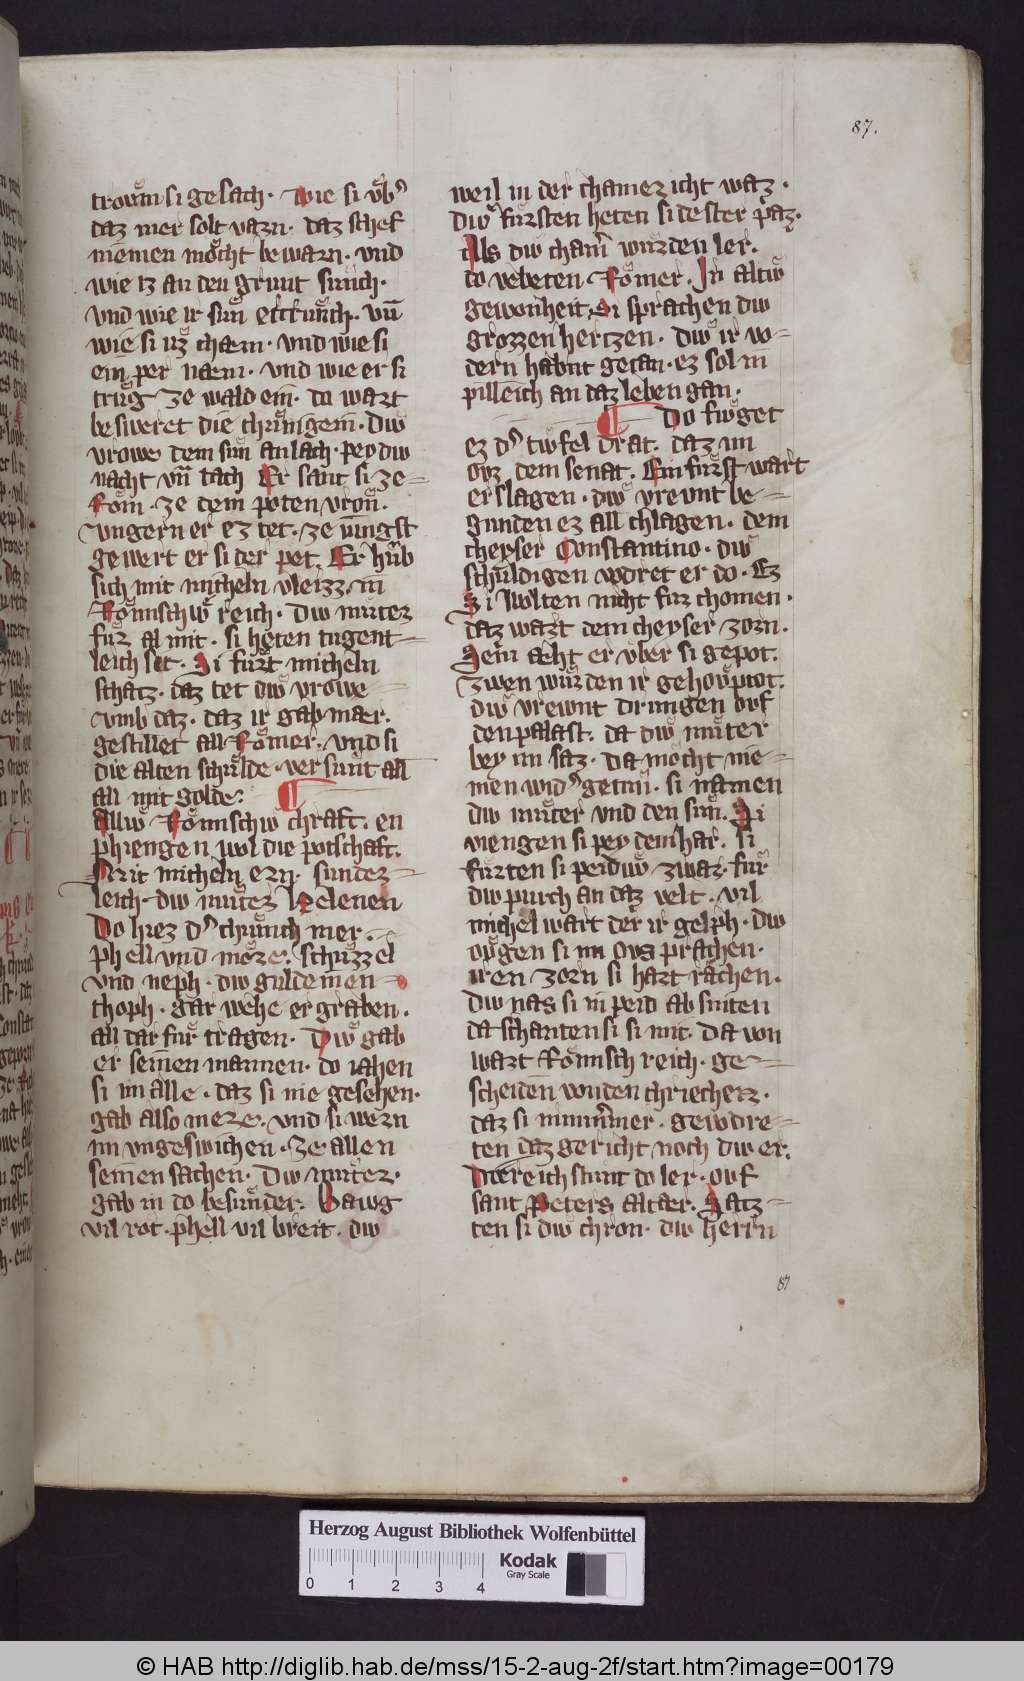 87.
trovͦm si gesach · wie si vͤb̾
daz mer solt varn · daz schef
niemen moͤcht bewarn · vnd
wie iz an den grunt sunch ·
vnd wie ir sun ertrunch · vn̄
wie si uz cham · vnd wie si
ein per nam · vnd wie er si
truͦg ze wald ein · do wart
besweret die chuͤnigein · diw
vrowe dem sun anlach · pey diw
nacht vn̄ tach Er sant si ze
Rom · ze dem poten vron ·
vngern er ez tet · ze vͤngst
gewert er si der pet · Er huͦb
sich mit micheln vleizz · in
Roͤmschiw reich · diw muter
fuͤr al mit · si heten tugent
leich set · Si fuͦrt micheln
schatz · daz tet diw vrowe
vmb daz · daz ir gab mær ·
gestillet all Roͤmer · vnd si
die alten schulde · versunt all
all mit golde ·
Alliw Roͤmschiw chraft · en
phiengen wol die potschaft ·
Mit micheln ern · sunder
leich · diw muͦter helenen
Do hiez d̾ chuͤnich mer ·
phell vnd moͤre · schuzzel
vnd neph · diw guldeinen
choph · gar wehe ergraben ·
all dar fuͤr tragen · Diw gab
er seinen mannen · do iahen
si im alle · daz si nie gesehen ·
gab also mere · vnd si wern
im vngeswichen · ze allen
seinen sachen · Diw muter ·
gab in do besunder · Bawg
vil rot · phell vil breit · diw
weil in der chamer icht waz ·
Diw fuͤrsten heten si dester paz ·
Als diw cham̄ wuͤrden ler ·
do vebeten Roͤmer · In altiw
gewonheit · Si sprachen diw
grozzen hertzen · diw ir vo
dern habnt getan · ez sol in
pilleich an daz leben gan ·
Do fiwget
ez d̾ tiwfel drat · daz im
vor dem senat · Ein fuͤrst wart
erslagen · diw vreunt be
gunden ez all chlagen · dem
cheyser Constantino · diw
schuldigen vodret er do · Ez
Si wolten nicht fur chomen ·
daz wart dem cheyser zorn ·
Sein æht er vber si gepot ·
zwen wurden ir gehovptot ·
diw vrewnt drungen ovf
den palast · da diw muter
bey im saz · da mocht nie
men wid̾ getun · si namen
diw muter vnd den sun · Si
viengen si pey dem har · Si
furten si peidiw zwar · fuͤr
diw purch an daz velt · vil
michel wart der ir gelph · diw
ovgen si im ovs prachen ·
iren zorn si hart rachen ·
diw nas si in peid ab sniten
da schanten si si mit · Da von
wart Roͤmsch reich · ge
scheiden von den chriechen ·
daz si nimm̄mer · gewdre
ten daz gericht noch diw er ·
Diw reich stunt do ler · ovf
sant Peters altær · Satz
ten si diw chron · diw herrn
87
Herzog August Bibliothek Wolfenbüttel
0 1 2 3 4
Kodak
Gray Scale
© HAB http://diglib.hab.de/mss/15-2-aug-2f/start.htm?image=00179